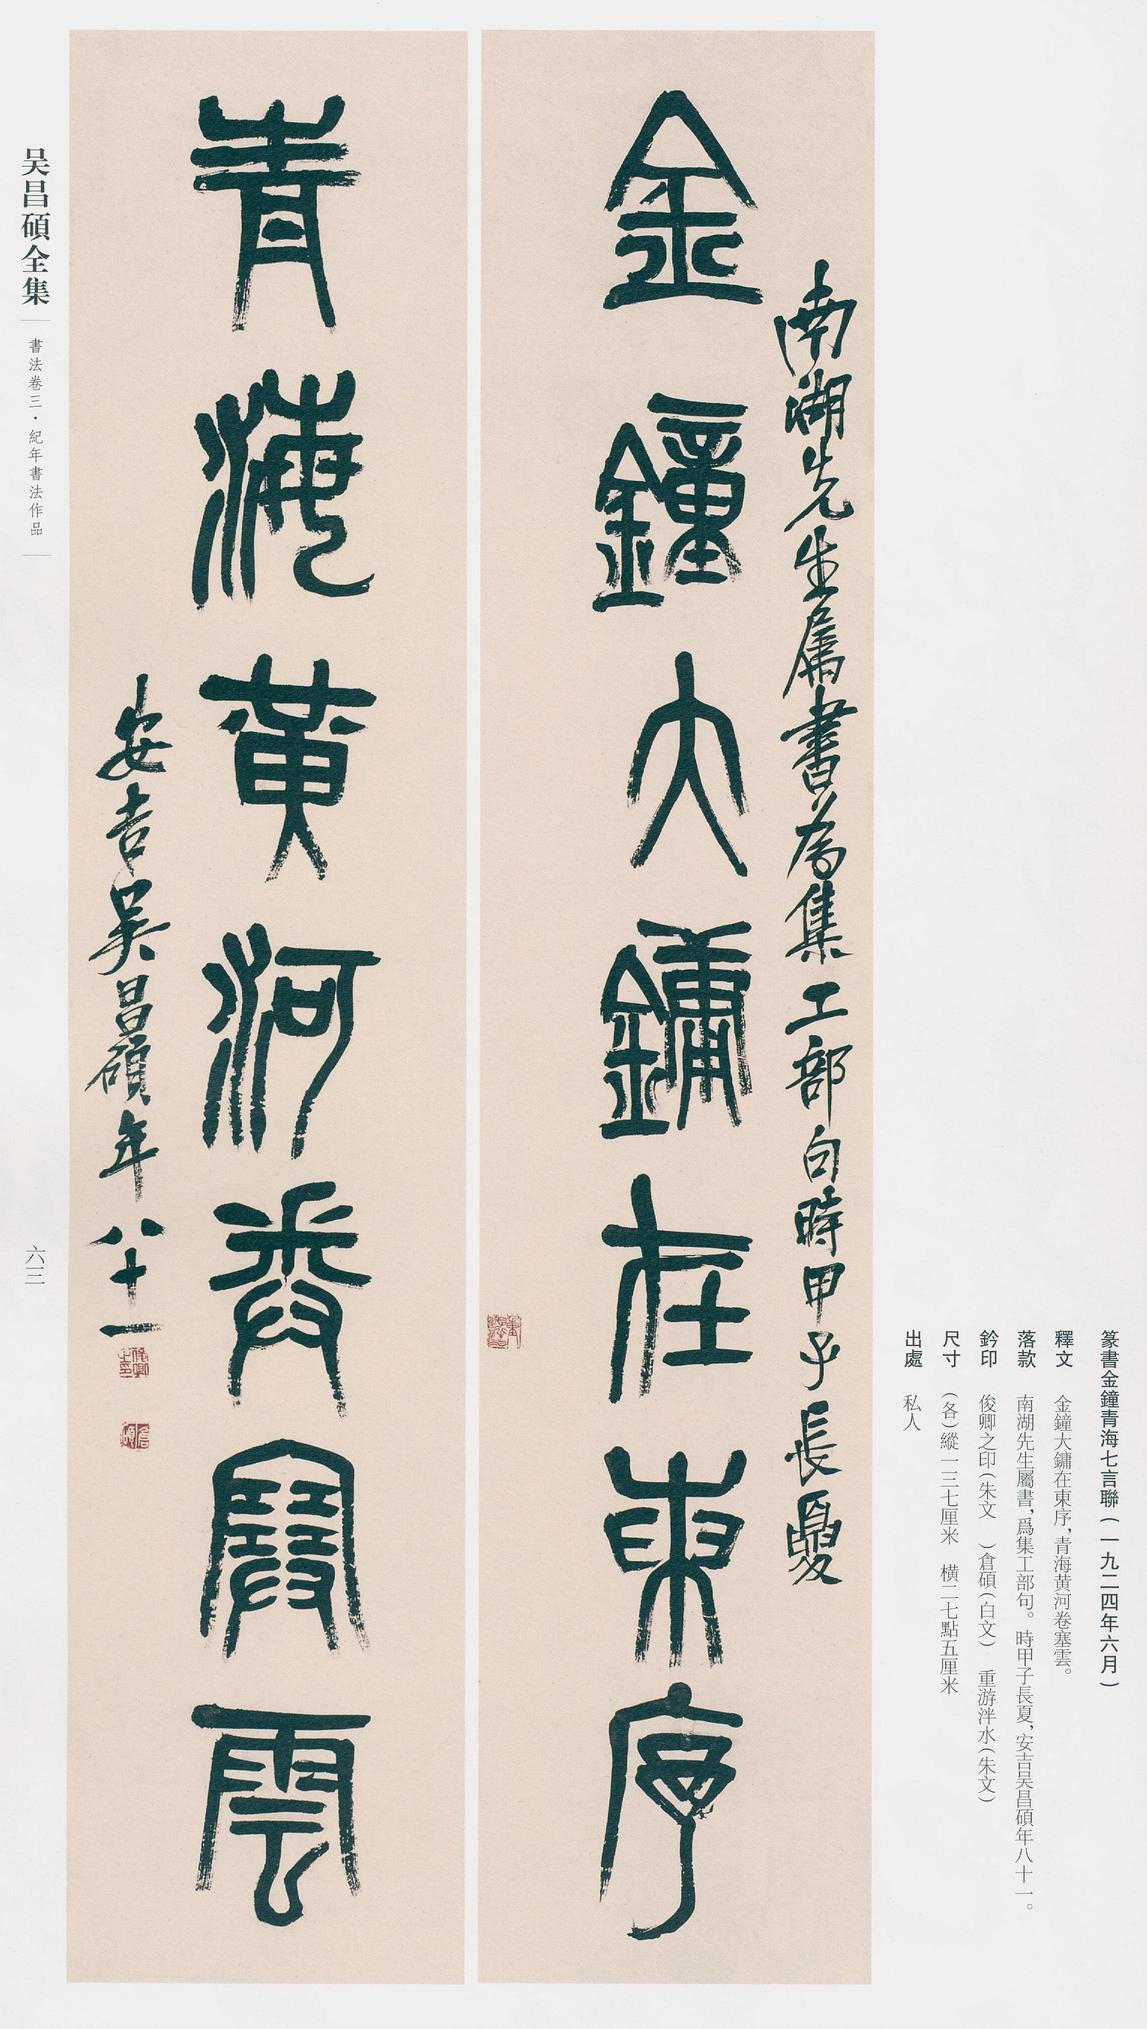 篆書金鐘青海七言聯(一九二四年六月)
釋文 金鐘大鏞在東序,青海黄河卷塞雲。
落款 南湖先生屬書,爲集工部句。時甲子長夏,安吉吴昌碩年八十一。
鈐印 俊卿之印(朱文 )倉碩(白文) 重游泮水(朱文)
尺寸 (各)縱一三七厘米 橫二七點五厘米
出處 私人
南湖先生屬書為集工部句時甲子長夏
金鐘大鏞在東序
青海黄河卷塞雲
安吉吴昌碩年八十一
俊卿之印
倉碩
吴昌碩全集
書法卷三·紀年書法作品
六三